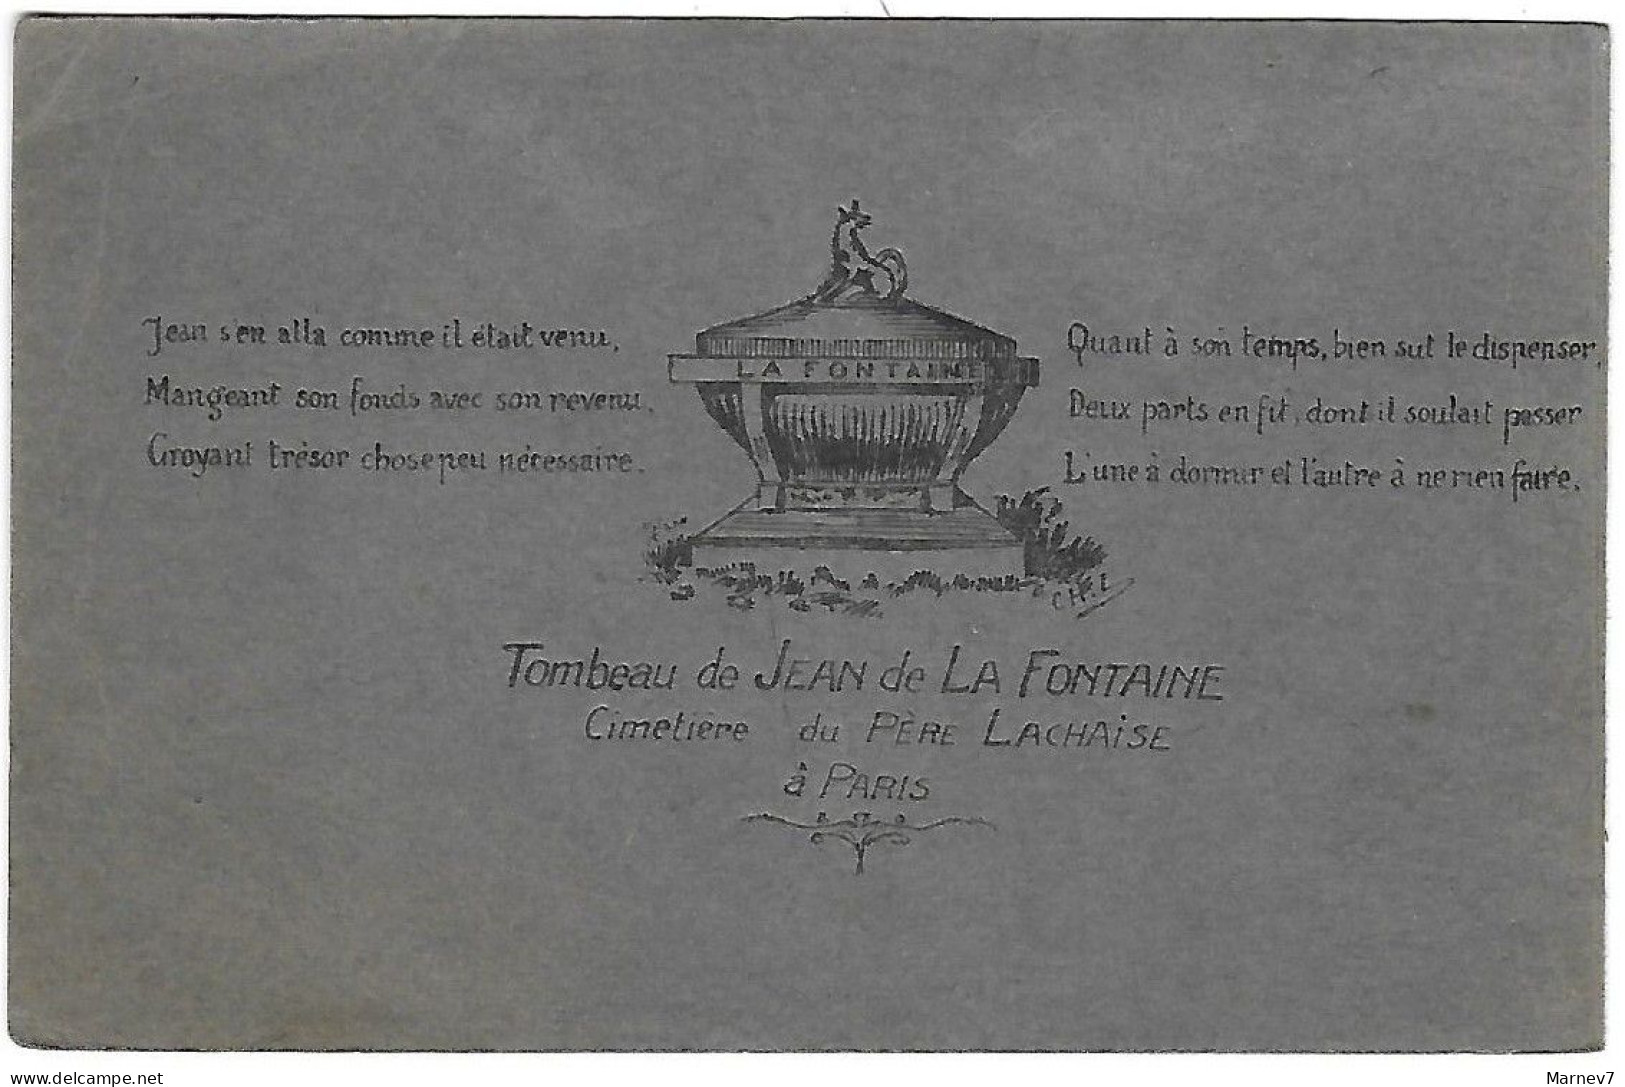 Jean s'en alla comme il était venu,
Mangeant son fonds avec son revenu,
Croyant trésor chose peu nécessaire.
LA FONTAINE
Quant à son temps, bien sut le dispenser,
Deux parts en fit, dont il soulait passer
L'une à dormir et l'autre à ne rien faire.
CH.L
Tombeau de JEAN de LA FONTAINE
Cimetière du PÈRE LACHAISE
à PARIS
Delcampe.net
Marnev7